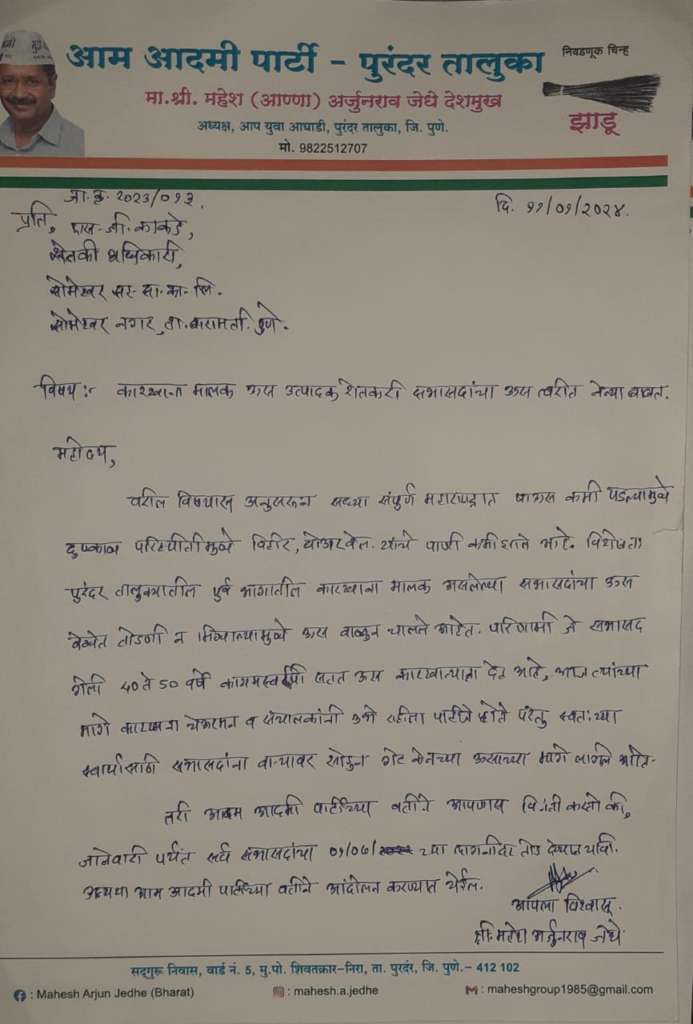 आम आदमी पार्टी - पुरंदर तालुका
निवडणूक चिन्ह
मा.श्री. महेश (आण्णा) अर्जुनराव जेधे देशमुख
झाडू
अध्यक्ष, आप युवा आघाडी, पुरंदर तालुका, जि. पुणे.
मो. 9822512707
जा.क्र. २०२३/०१३.
दि. ११/०१/२०२४.
प्रति,
काकडे,
शेतकी अधिकारी,
सोमेश्वर सह. सा. का. लि.
सोमेश्वर नगर, ता. बारामती. पुणे.
विषय :- कारखाना मालक ऊस उत्पादक शेतकरी सभासदांचा ऊस त्वरीत नेण्या बाबत.
महोदय,
वरील विषयास अनुसरून सध्या संपुर्ण महाराष्ट्रात पाऊस कमी पडल्यामुळे
दुष्काळ परिस्थीतीमुळे विहीर, बोअरवेल यांचे पाणी कमी झाले आहे. विशेषतः
पुरंदर तालुक्यातील पुर्व भागातील कारखाना मालक असलेल्या सभासदांचा ऊस
वेळेत तोडणी न मिळाल्यामुळे ऊस वाळुन चालले आहेत. परिणामी जे सभासद
गेली 40 ते 50 वर्षे कायमस्वरूपी सतत ऊस कारखान्याला देत आहे, आज त्यांच्या
मागे कारखाना चेअरमन व संचालकांनी उभे राहीला पाहीजे होते परंतु स्वतःच्या
स्वार्थासाठी सभासदांना वाऱ्यावर सोडुन गेट केनच्या ऊसाच्या मागे लागले आहेत.
तरी आम आदमी पार्टीच्या वतीने आपणास विनंती करतो की,
जानेवारी पर्यंत सर्व सभासदांचा 09/07/ च्या लागणीला तोड देण्यात यावी.
अन्यथा आम आदमी पार्टीच्या वतीने आंदोलन करण्यात येईल.
आपला विश्वासू.
श्री. महेश अर्जुनराव जेधे
सद्गुरू निवास, वार्ड नं. 5, मु.पो. शिवतक्रार-निरा, ता. पुरदंर, जि. पुणे.– 412 102
: Mahesh Arjun Jedhe (Bharat)
: mahesh.a.jedhe
: maheshgroup1985@gmail.com